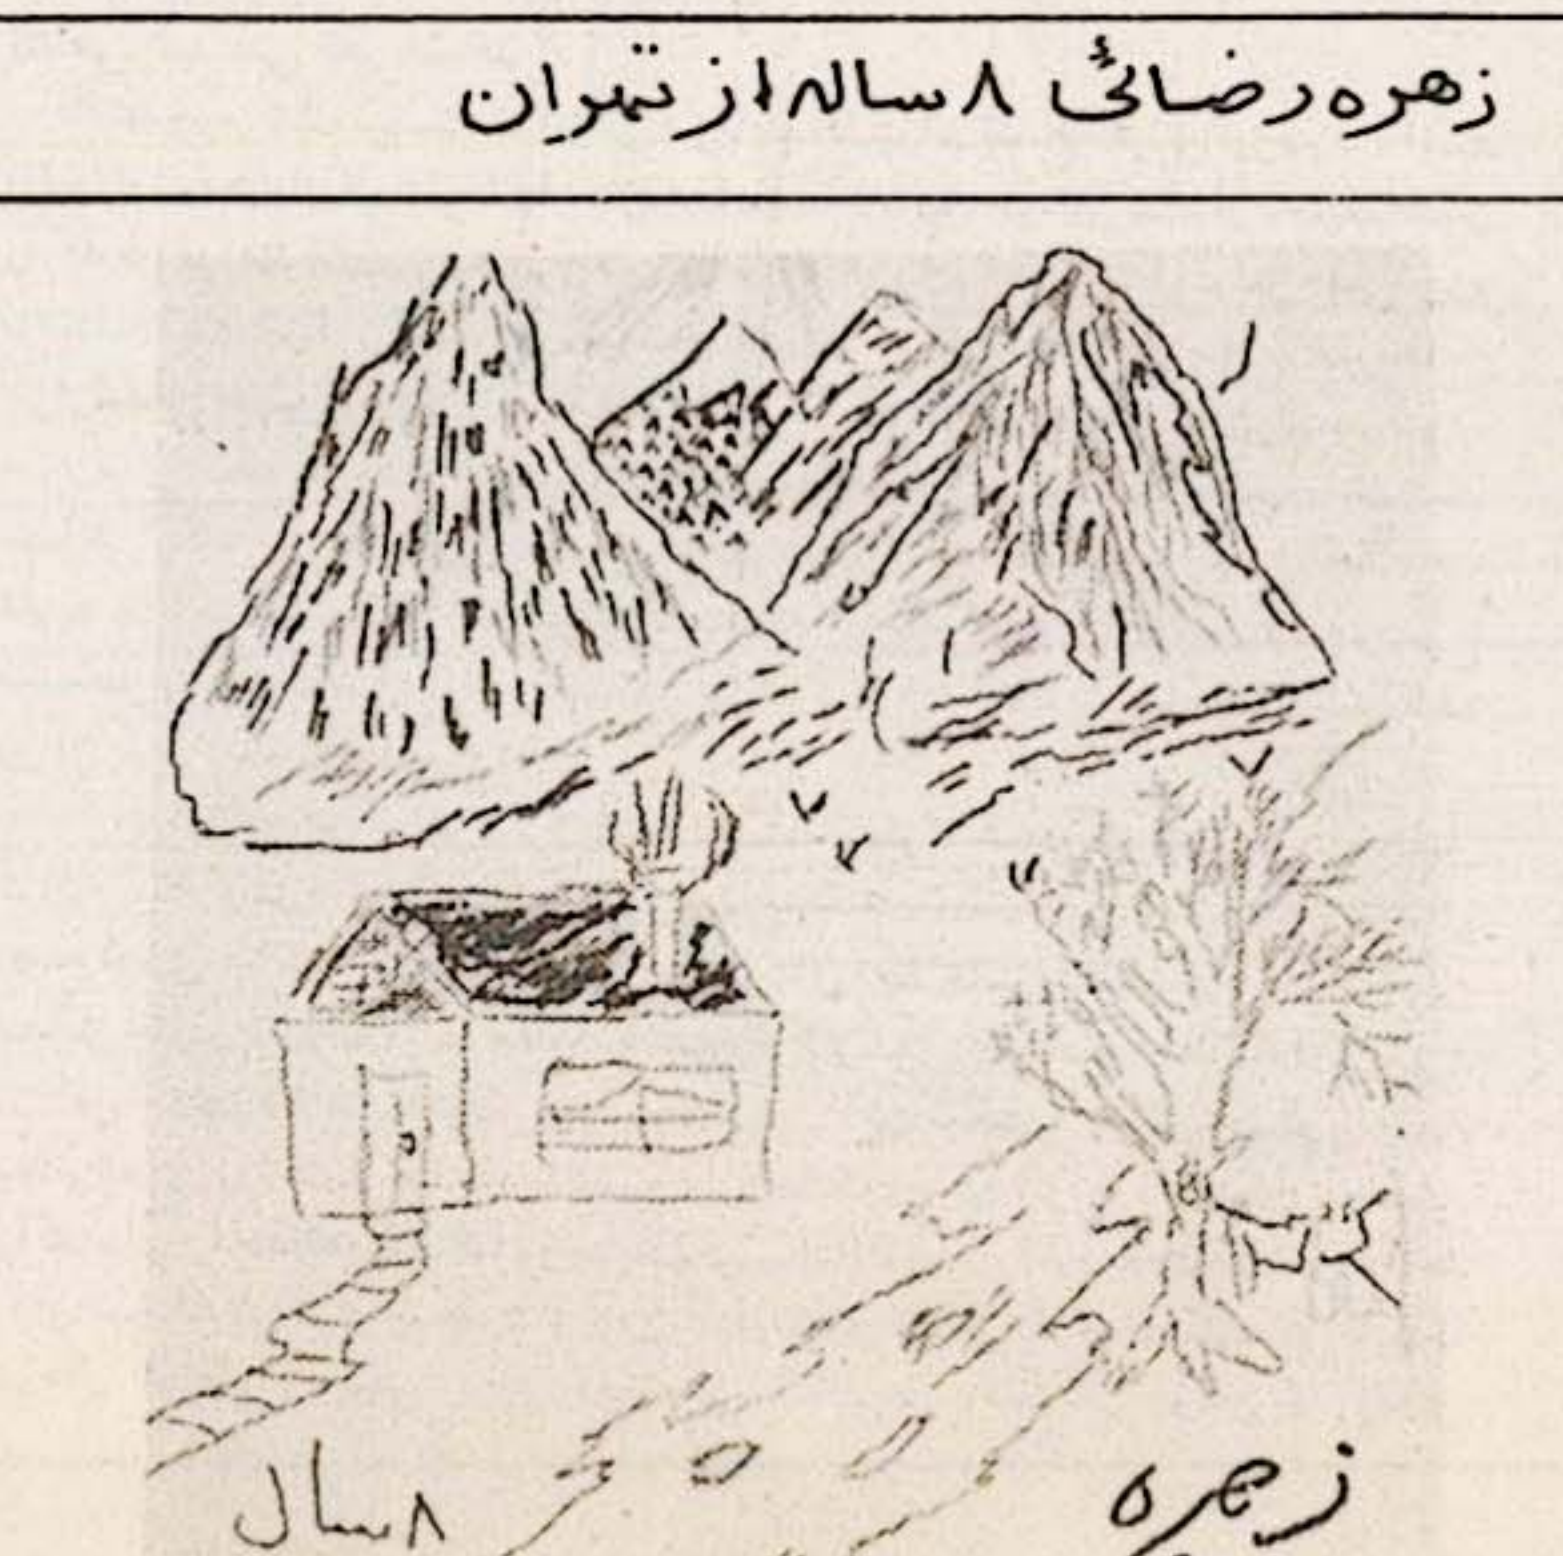 زهره رضائی ۸ ساله از تهران
زهره
۸ سال